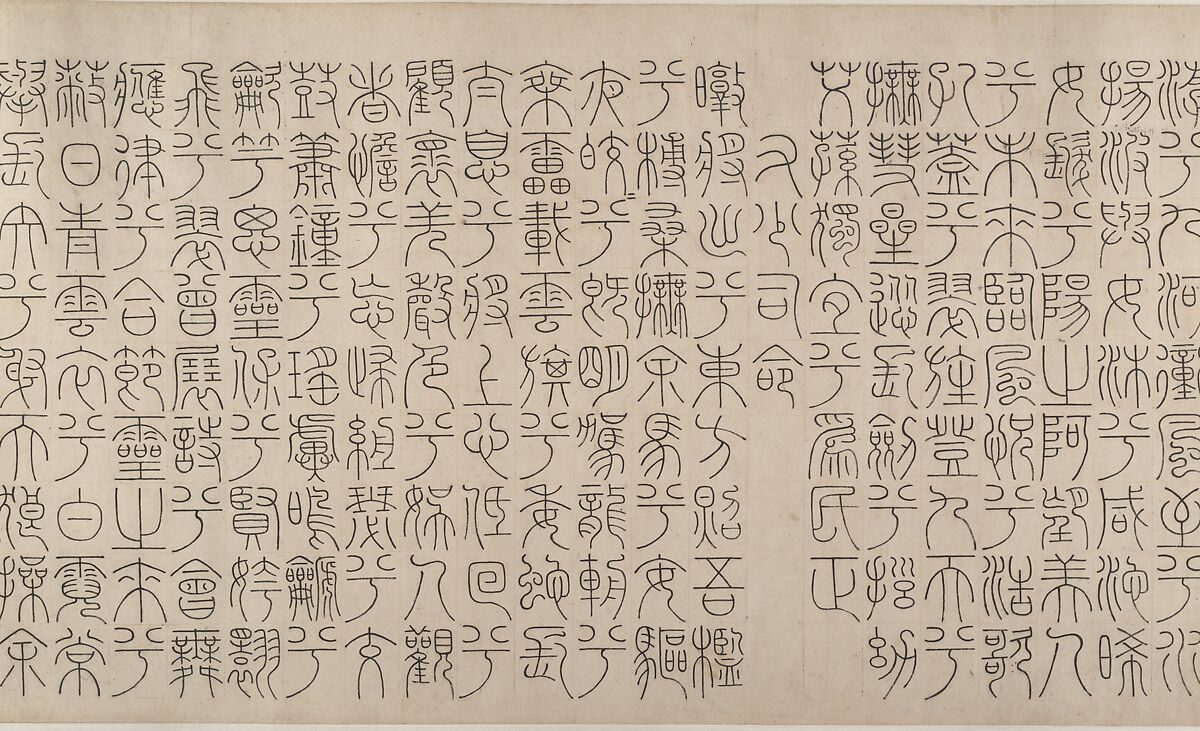 游兮九河衝風至兮水
揚波與女沐兮咸池晞
女髮兮陽之阿望美人
兮未來臨風怳兮浩歌
孔蓋兮翠旌登九天兮
撫彗星竦長劍兮擁幼
艾蓀獨宜兮爲民正
又少司命
暾將出兮東方照吾檻
兮榑桑撫余馬兮安驅
夜皎=兮既明駕龍輈兮
乘靁載雲旗兮委蛇長
太息兮將上心低回兮
顧褱羌聲色兮娛人觀
者憺兮忘歸緪瑟兮交
鼓簫鐘兮瑤虡鳴龥兮
龡竽思靈保兮賢姱翾
飛兮翠曾展詩兮會舞
應律兮合節靈之來兮
蔽日青雲衣兮白霓常
舉長矢兮射天狼操余